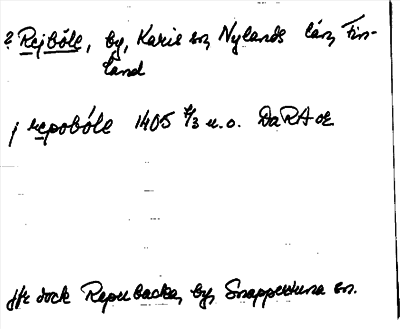 ? Rejböle, by, Karis sn, Nylands län, Fin-
land
j repobóle 1405 8/3 u.o. DaRA or
jfr dock Repubacka, by, Snappertuna sn.